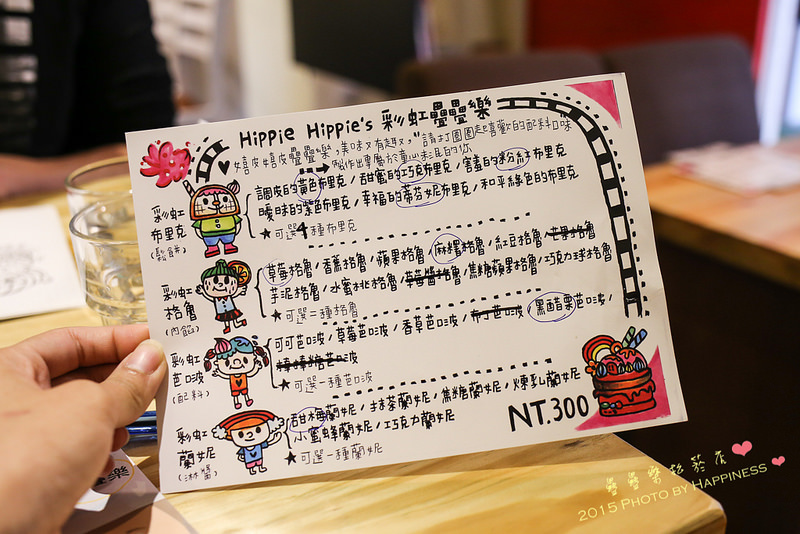 Hippie Hippie's 彩虹疊疊樂
♥嬉皮嬉皮疊疊樂,美味又有趣,"請打圈圈起喜歡的配料口味
製作出專屬於童心未泯的你
彩虹
布里克
(鬆餅)
調皮的黃色布里克/甜蜜的巧克布里克/害羞的粉紅布里克
曖昧的紫色布里克/幸福的蒂芬妮布里克/和平綠色的布里克
★可選4種布里克
彩虹
格魯
(內餡)
草莓格魯/香蕉格魯/蘋果格魯/麻糬格魯/紅豆格魯/芒果格魯
芋泥格魯/水蜜桃格魯/草莓醬格魯/焦糖蘋果格魯/巧克力球格魯
★可選二種格魯
彩虹
芭啵
(配料)
可可芭啵/草莓芭啵/香草芭啵/布丁芭啵/黑醋栗芭啵/
棉棉糖芭啵
★可選一種芭啵
彩虹
蘭妮
(淋醬)
甜梅蘭妮/抹茶蘭妮/焦糖蘭妮/煉乳蘭妮
小蜜蜂蘭妮/巧克力蘭妮
★可選一種蘭妮
NT.300
2015 PHOTO BY HAPPINESS